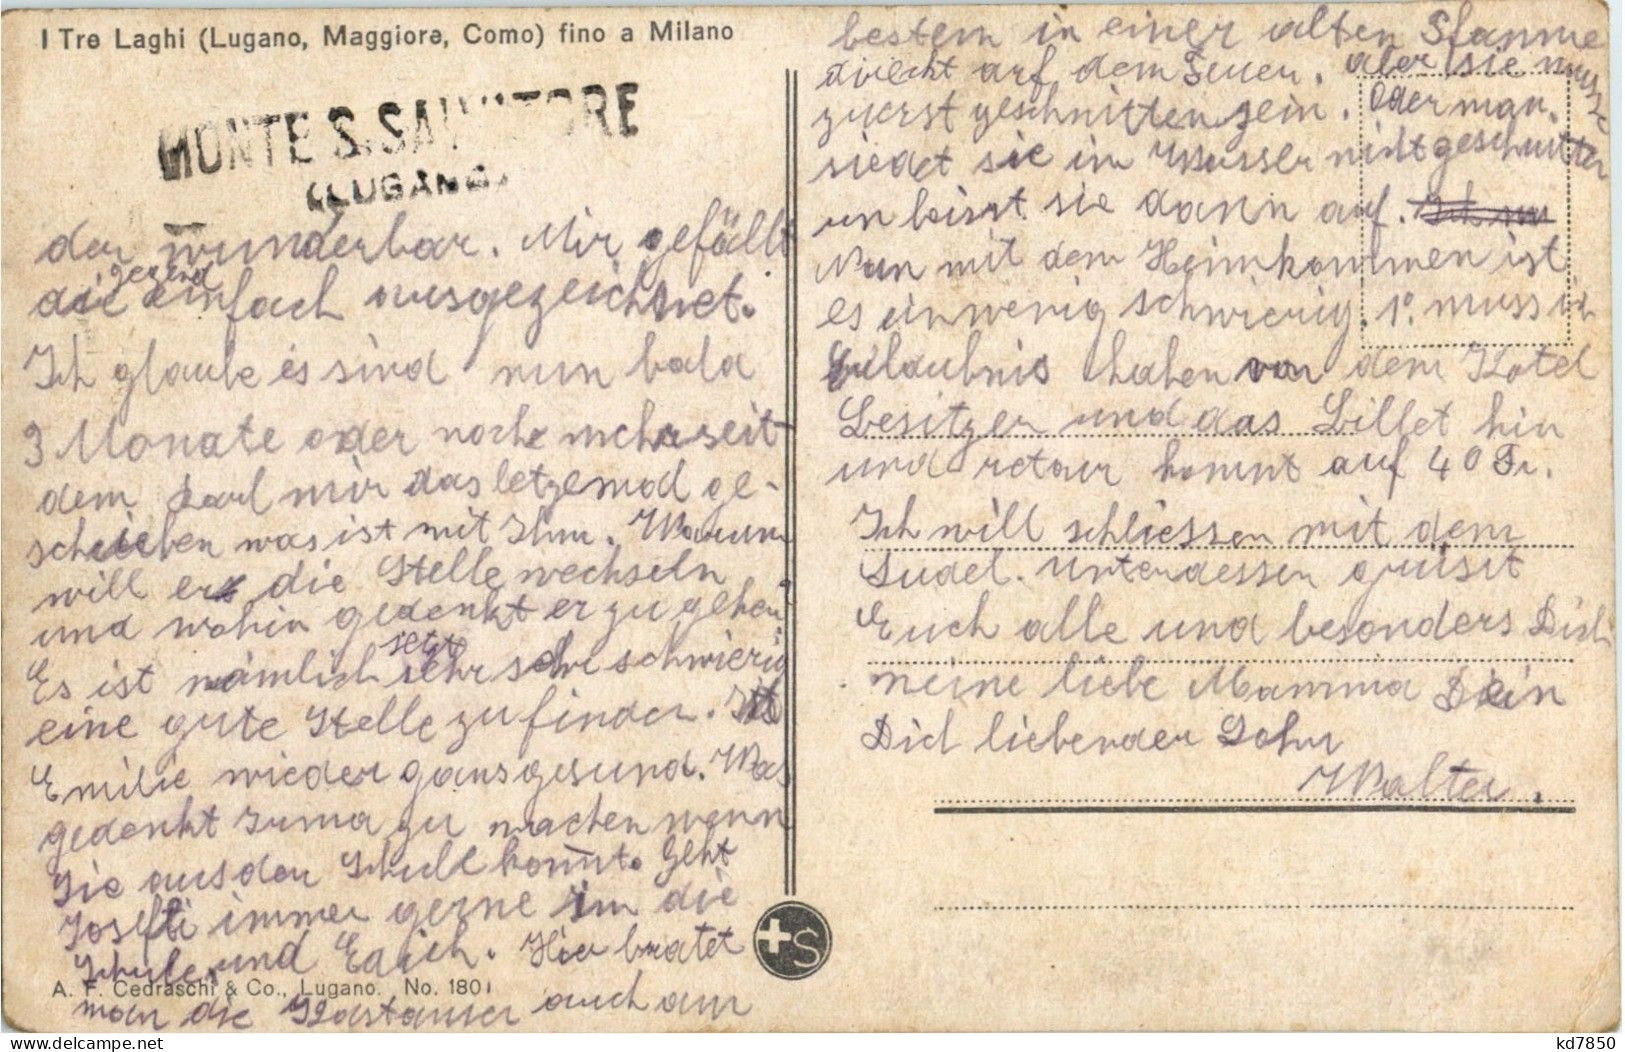 I Tre Laghi (Lugano, Maggiore, Como) fino a Milano
MONTE S. SALVATORE
(LUGANO)
der wunderbar. Mir gefällt
die gegend einfach ausgezeichnet.
Ich glaube es sind nun bald
3 Monate oder noch mehr seit
dem Karl mir das letzemal ge-
schrieben was ist mit Ihm. Warum
will er die Stelle wechseln
und wohin gedenkt er zu gehen?
Es ist nämlich jetzt sehr sehr schwierig
eine gute Stelle zu finden. Ist
Emilie wieder gans gesund. Was
gedenkt Irma zu machen wenn
Sie aus der Schule kommt. Geht
immer gerne in die
Schule, und Erich. Hier bratet
A. F. Cedraschi & Co., Lugano. No. 1801
man die Kastanien auch am
bestem in einer alten Pfanne
direckt auf dem Feuer. aber sie muss
zuerst geschnitten sein. Oder man
siedet sie im Wasser nicht geschnitten
un beisst sie dann auf.
Nun mit dem Heimkommen ist
es ein wenig schwierig. 1° muss ich
Erlaubnis haben von dem Hotel
Besitzer und das Billet hin
und retour kommt auf 40 Fr.
Ich will schliessen mit dem
Sudel. Unterdessen grüsst
Euch alle und besonders Dich
meine liebe Mamma Dein
Dich liebender Sohn
Walter.
+S
kd7850